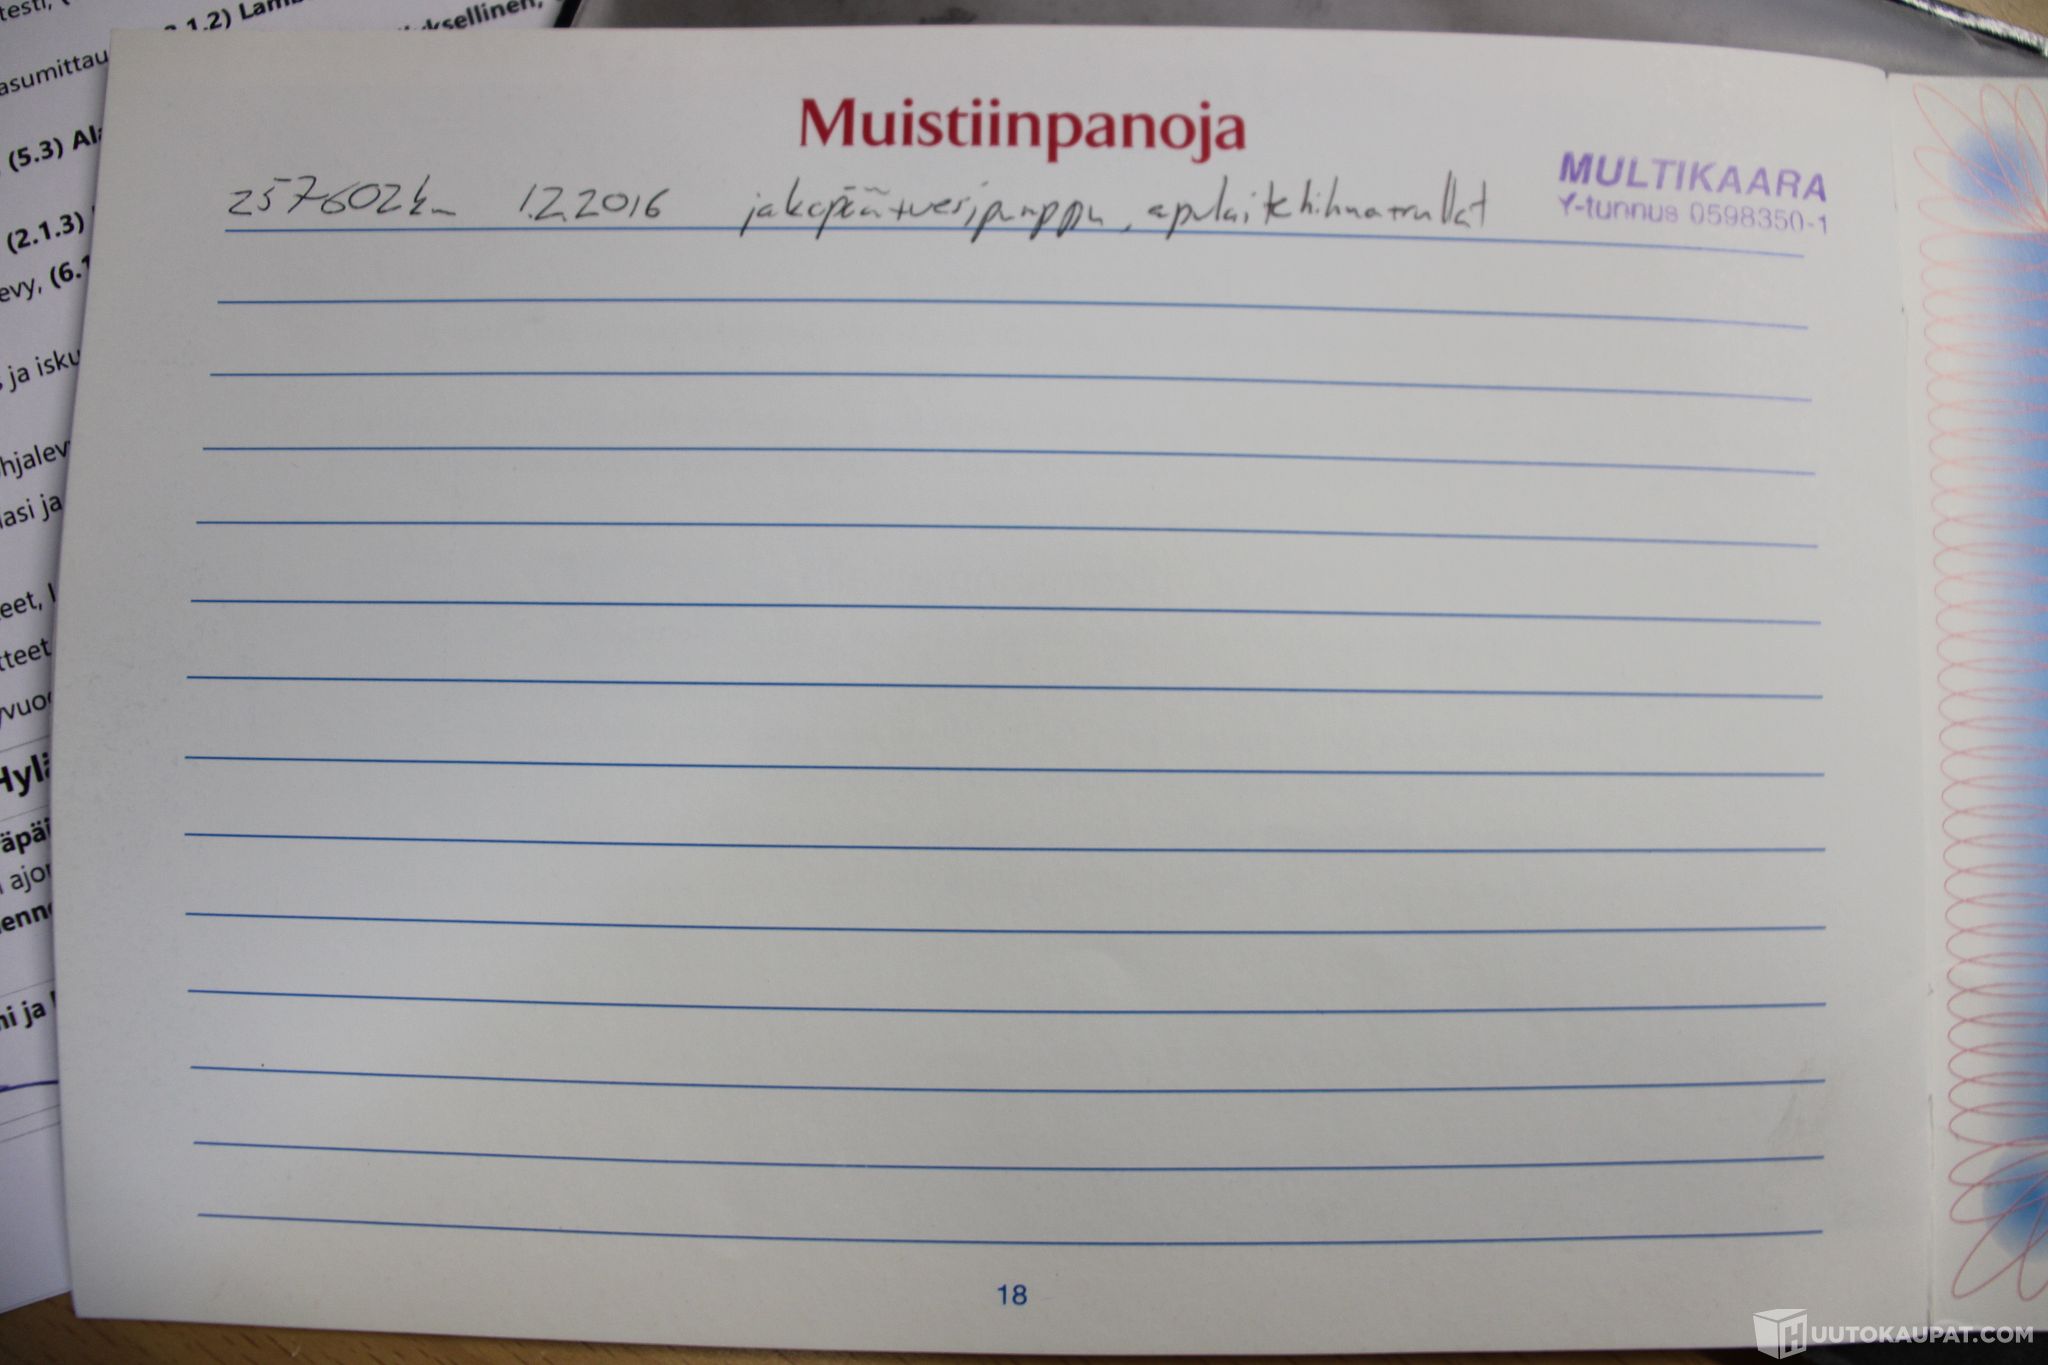 testi,
2.1.2) Lamb
asumittau
yksellinen,
(5.3) Ala
(2.1.3)
evy, (6.1
ja isku
hjalev
lasi ja
eet,
tteet
yvuo
Hylä
äpäi
ajor
enne
ni ja
Muistiinpanoja
257602km 1.2.2016 jakopää+vesipumppu, apulaitehihna+rullat
MULTIKAARA
Y-tunnus 0598350-1
18
HUUTOKAUPAT.COM